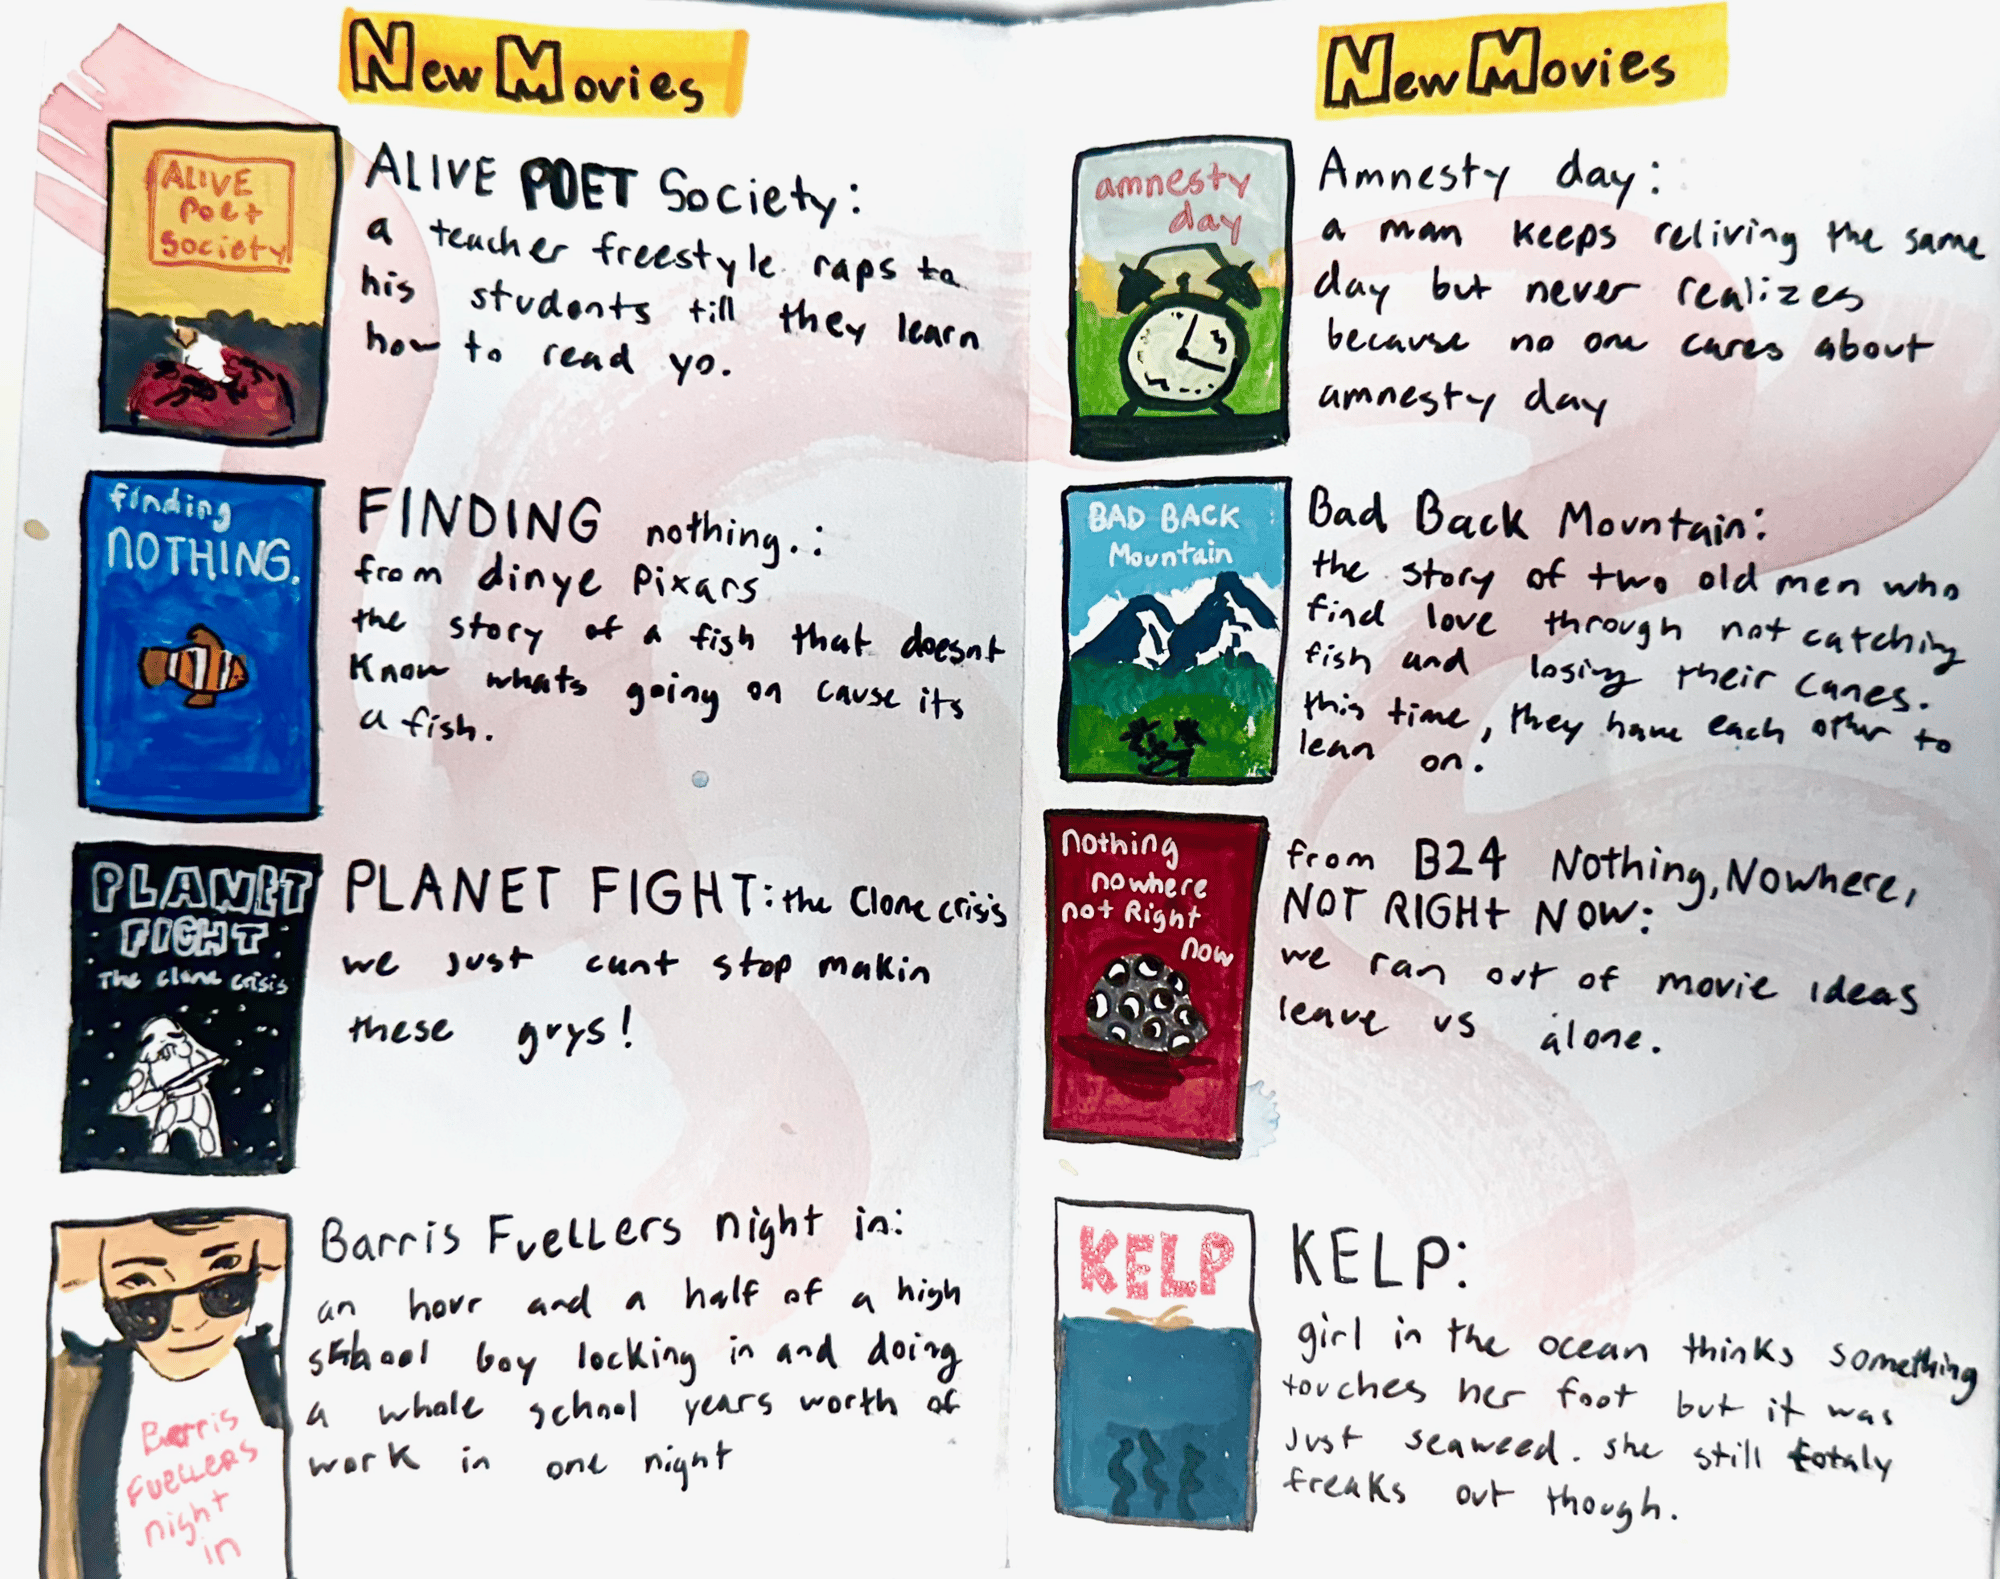 New Movies
ALIVE
Poet
Society
ALIVE POET Society:
a teacher freestyle raps to
his students till they learn
how to read yo.
finding
NOTHING.
FINDING nothing.:
from dinye Pixars
the story of a fish that doesnt
Know whats going on cause its
a fish.
PLANET
FIGHT
The clone crisis
PLANET FIGHT: the Clone crisis
we just cant stop makin
these guys!
Barris
Fuellers
night
in
Barris Fuellers night in:
an hour and a half of a high
school boy locking in and doing
a whole school years worth of
work in one night
New Movies
amnesty
day
Amnesty day:
a man keeps reliving the same
day but never realizes
because no one cares about
amnesty day
BAD BACK
Mountain
Bad Back Mountain:
the story of two old men who
find love through not catching
fish and losing their canes.
this time, they have each other to
lean on.
nothing
nowhere
not Right
now
from B24 Nothing, Nowhere,
NOT RIGHt NOW:
we ran out of movie ideas
leave us alone.
KELP
KELP:
girl in the ocean thinks something
touches her foot but it was
just seaweed. she still totaly
freaks out though.